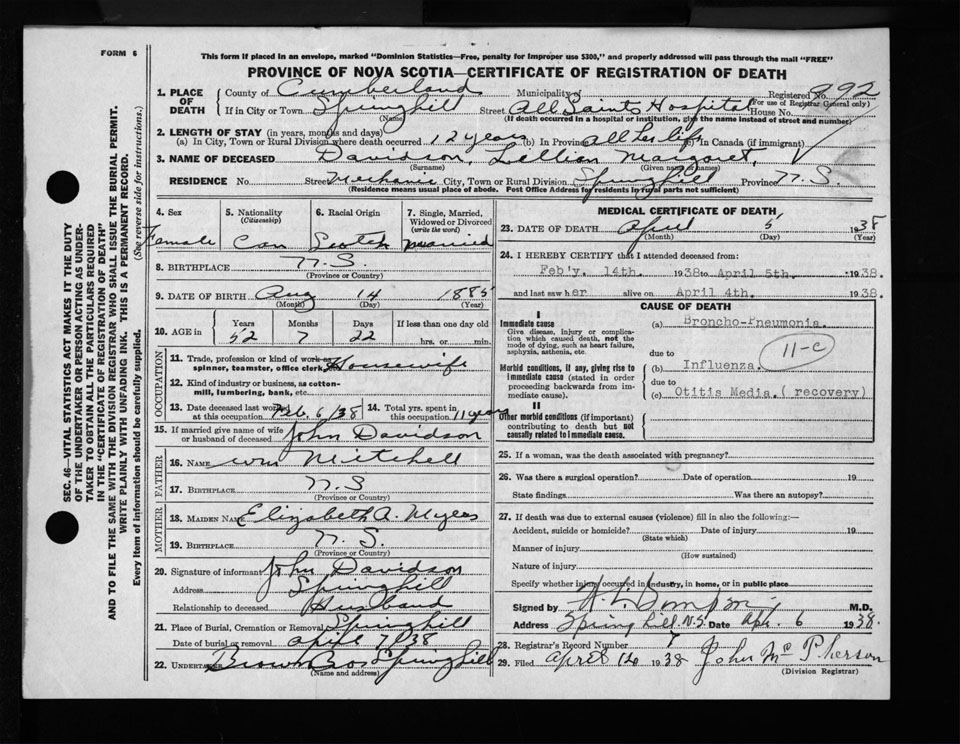 FORM 6
This form if placed in an envelope, marked "Dominion Statistics—Free, penalty for improper use $300," and properly addressed will pass through the mail "FREE"
PROVINCE OF NOVA SCOTIA—CERTIFICATE OF REGISTRATION OF DEATH
SEC. 46—VITAL STATISTICS ACT MAKES IT THE DUTY
OF THE UNDERTAKER OR PERSON ACTING AS UNDER-
TAKER TO OBTAIN ALL THE PARTICULARS REQUIRED
IN THE "CERTIFICATE OF REGISTRATION OF DEATH"
AND TO FILE THE SAME WITH THE DIVISION REGISTRAR WHO SHALL ISSUE THE BURIAL PERMIT.
WRITE PLAINLY WITH UNFADING INK. THIS IS A PERMANENT RECORD.
Every item of information should be carefully supplied. (See reverse side for instructions.)
1. PLACE OF DEATH County of Cumberland Municipality of Registered No. 292
(For use of Registrar General only)
If in City or Town Springhill Street All Saints Hospital House No.
(Name) (If death occurred in a hospital or institution, give the name instead of street and number)
2. LENGTH OF STAY (in years, months and days)
(a) In City, Town or Rural Division where death occurred 12 years (b) In Province all her life (c) In Canada (if immigrant)
3. NAME OF DECEASED Davidson, Lillian Margaret,
(Surname) (Given name or names)
RESIDENCE No. Street Mechanic City, Town or Rural Division Springhill Province N.S.
(Residence means usual place of abode. Post Office Address for residents in rural parts not sufficient)
4. Sex 5. Nationality (Citizenship) 6. Racial Origin 7. Single, Married, Widowed or Divorced (write the word)
Female Can Scotch Married
8. BIRTHPLACE N.S.
(Province or Country)
9. DATE OF BIRTH Aug 14 1885
(Month) (Day) (Year)
10. AGE in Years Months Days If less than one day old
52 7 22 hrs. or min.
OCCUPATION
11. Trade, profession or kind of work as spinner, teamster, office clerk, Housewife
12. Kind of industry or business, as cotton-mill, lumbering, bank, etc.
13. Date deceased last worked at this occupation Feb. 6/38 14. Total yrs. spent in this occupation 11 years
15. If married give name of wife or husband of deceased John Davidson
FATHER
16. NAME Wm Mitchell
17. BIRTHPLACE N.S
(Province or Country)
MOTHER
18. MAIDEN NAME Elizabeth A. Myles
19. BIRTHPLACE N.S.
(Province or Country)
20. Signature of informant John Davidson
Address Springhill
Relationship to deceased Husband
21. Place of Burial, Cremation or Removal Springhill
Date of burial or removal April 7/38
22. UNDERTAKER Brown Bros Springhill
(Name and address)
MEDICAL CERTIFICATE OF DEATH
23. DATE OF DEATH April 5 1938
(Month) (Day) (Year)
24. I HEREBY CERTIFY that I attended deceased from:
Feb'y. 14th. 1938 to April 5th. 1938.
and last saw her alive on April 4th. 1938.
CAUSE OF DEATH
I
Immediate cause
Give disease, injury or complication which caused death, not the mode of dying, such as heart failure, asphyxia, asthenia, etc.
(a) Broncho-Pneumonia.
11-c
due to
Morbid conditions, if any, giving rise to immediate cause (stated in order proceeding backwards from immediate cause).
(b) Influenza.
due to
(c) Otitis Media. ( recovery)
II
Other morbid conditions (if important) contributing to death but not causally related to immediate cause.
25. If a woman, was the death associated with pregnancy?
26. Was there a surgical operation? Date of operation 19
State findings Was there an autopsy?
27. If death was due to external causes (violence) fill in also the following:—
Accident, suicide or homicide? Date of injury 19
(State which)
Manner of injury
(How sustained)
Nature of injury
Specify whether injury occurred in industry, in home, or in public place
Signed by Simpson M.D.
Address Springhill N.S. Date Apr. 6 1938.
28. Registrar's Record Number
29. Filed April 1938 John McPherson
(Division Registrar)